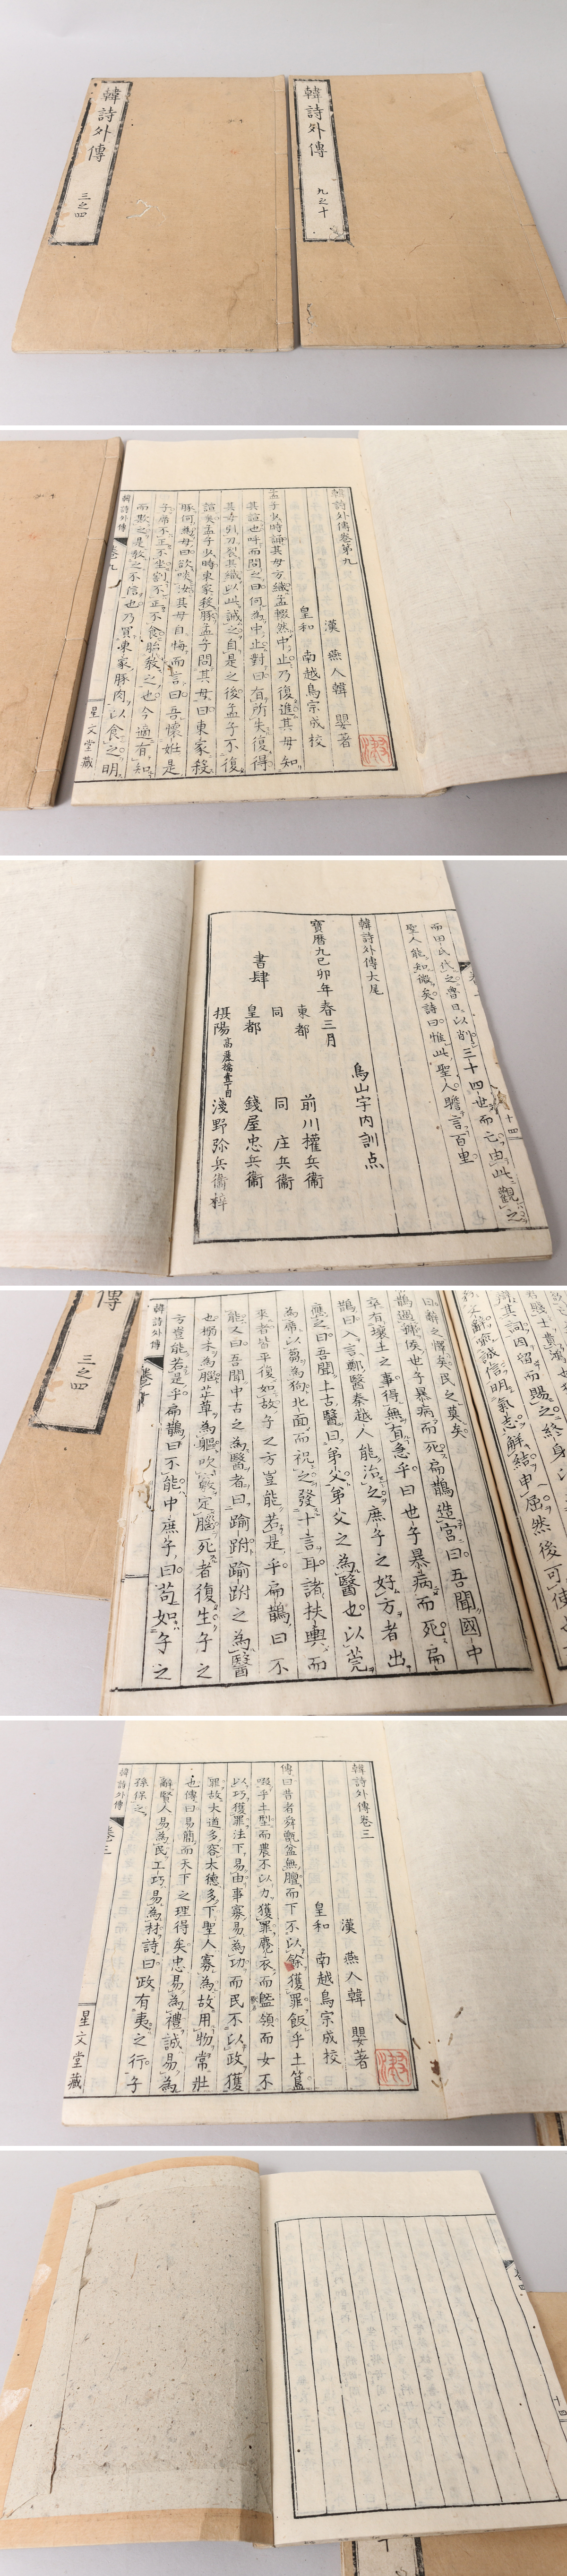 韓詩外傳
三之四
韓詩外傳
九之十
韓詩外傳卷第九
漢 燕人韓 嬰著
皇和 南越鳥宗成校
孟子少時誦其母方織孟輟然中止乃復進其母知
其諠也呼而問之曰何為中止對曰有所失復得
其母引刀裂其織以此誡之自是之後孟子不復
諠矣孟子少時東家殺豚孟子問其母曰東家殺
豚何為母曰欲啖汝其母自悔而言曰吾懷姙是
子席不正不坐割不正不食胎教之也今適有知
而欺之是教之不信也乃買東家豚肉以食之明
韓詩外傳
卷九
星文堂藏
三十四世而亡由此觀之
而田氏代之魯日以削
聖人能知微矣詩曰惟此聖人瞻言百里
韓詩外傳大尾
鳥山宇内訓点
寶曆九己卯年春三月
東都 前川權兵衛
同 同 庄兵衛
書肆
皇都 錢屋忠兵衛
摂陽 高麗橋壹丁目 淺野弥兵衛梓
傳
三之四
曰辭之懌矣民之莫矣
鵲過虢侯世子暴病而死扁鵲造宮曰吾聞國中
卒有壤土之事得無有急乎曰世子暴病而死扁
鵲曰入言鄭醫秦越人能治之庶子之好方者出
應之曰吾聞上古醫曰弟父弟父之為醫也以莞
為席以蒭為狗北面而祝之發十言耳諸扶輿而
來者皆平復如故子之方豈能若是乎扁鵲曰不
能又曰吾聞中古之為醫者曰踰跗踰跗之為醫
也搦木為腦芷草為軀吹竅定腦死者復生子之
方豈能若是乎扁鵲曰不能中庶子曰苟如子之
韓詩外傳
韓詩外傳卷三
漢 燕人韓 嬰著
皇和 南越鳥宗成校
傳曰昔者舜甑盆無膻而下不以餘獲罪飯乎土簋
啜乎土型而農不以力獲罪麑衣而盭領而女不
以巧獲罪法下易由事寡易為功而民不以政獲
罪故大道多容大德多下聖人寡為故用物常壯
也傳曰易簡而天下之理得矣忠易為禮誠易為
辭賢人易為民工巧易為材詩曰政有夷之行子
孫保之
韓詩外傳
卷三
星文堂藏